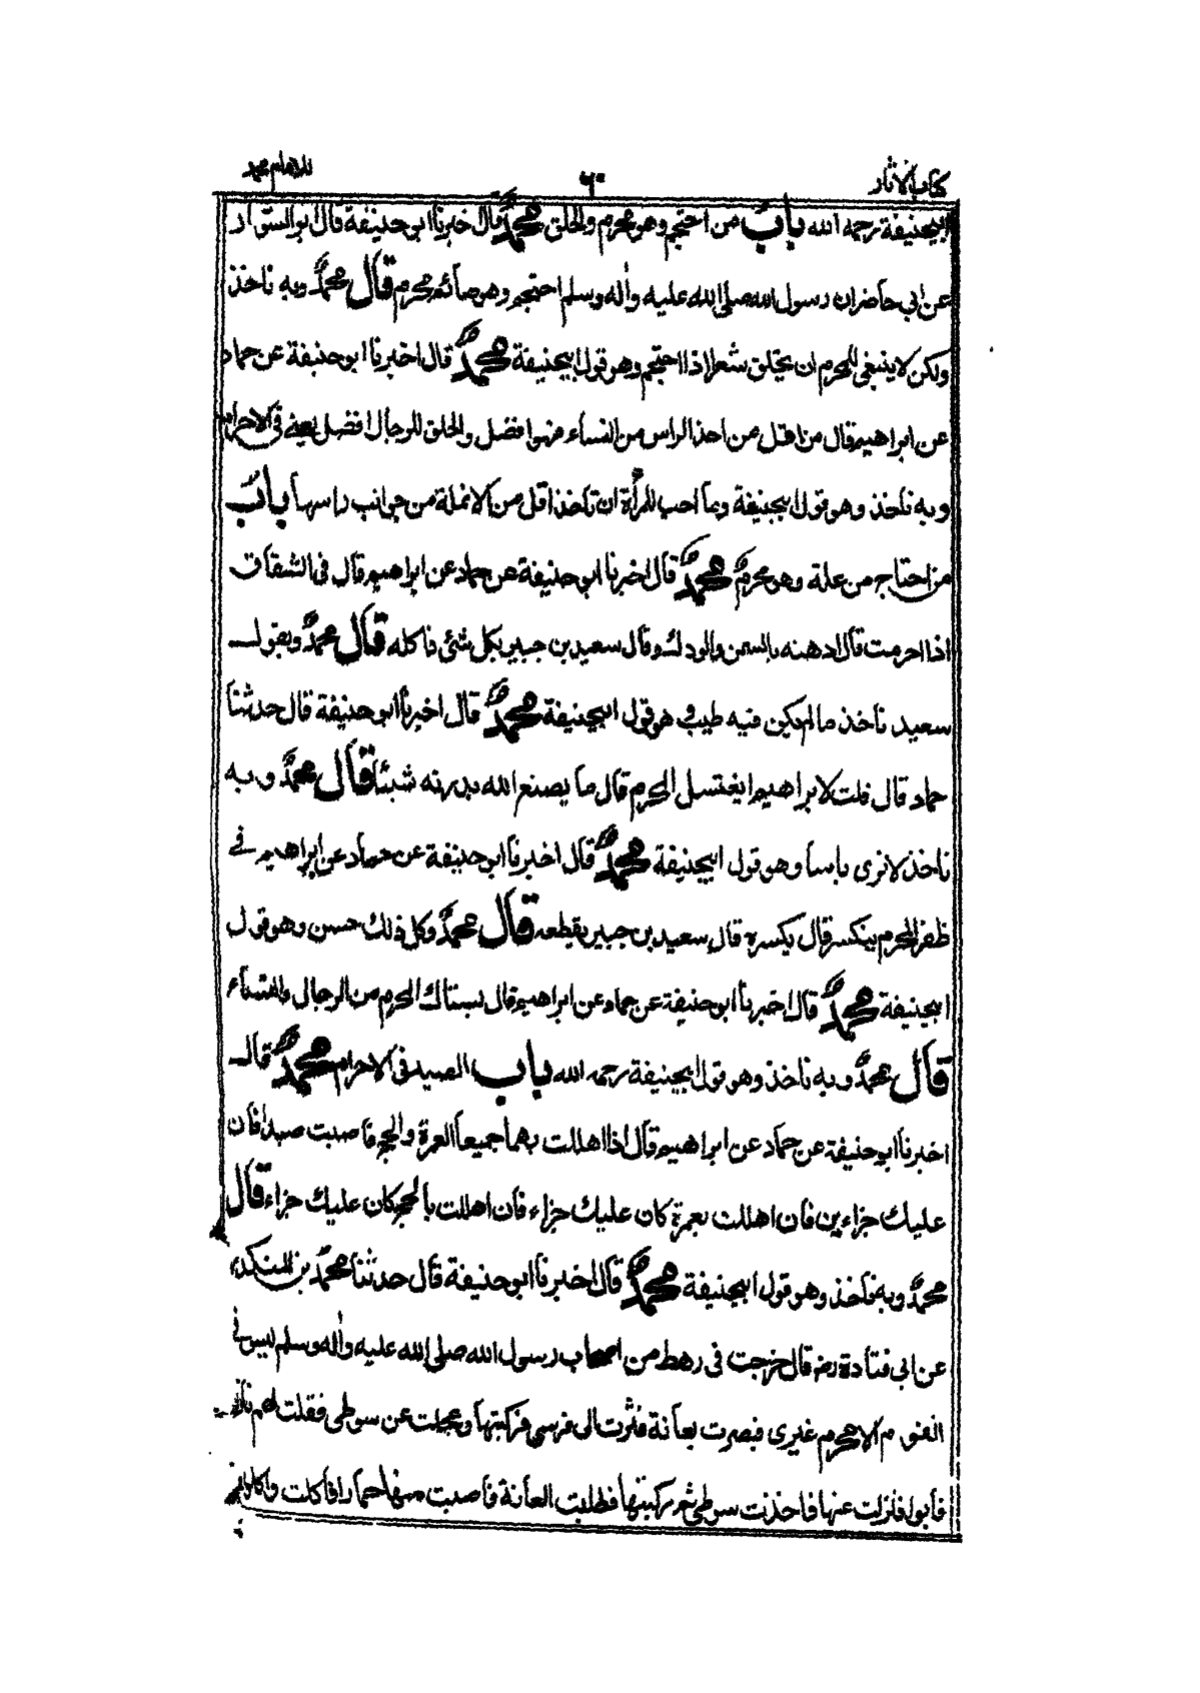 كتاب الاثار
٦٠
للامام محمد
ابيحنيفة رحمه الله باب من احتجم وهو محرم والحلق محمد قال اخبرنا ابو حنيفة قال ابو السوار
عن ابي حاضر ان رسول الله صلى الله عليه واٰله وسلم احتجم وهو صائم محرم قال محمد وبه ناخذ
ولكن لا ينبغي للمحرم ان يحلق شعرا اذا احتجم وهو قول ابيحنيفة محمد قال اخبرنا ابو حنيفة عن حماد
عن ابراهيم قال من اقل من اخذ الراس من النساء فهو افضل والحلق للرجال افضل يعني في الاحرام
وبه ناخذ وهو قول ابيحنيفة وما احب للمرأة ان تاخذ اقل من الانملة من جوانب راسها باب
من احتاج من علة وهو محرم محمد قال اخبرنا ابو حنيفة عن حماد عن ابراهيم قال في الشقاق
اذا احرمت قال ادهنه بالسمن والودك وقال سعيد بن جبير بكل شئ تاكله قال محمد وبقول
سعيد ناخذ ما لم يكن فيه طيب وهو قول ابيحنيفة محمد قال اخبرنا ابو حنيفة قال حدثنا
حماد قال قلت لابراهيم ايغتسل المحرم قال ما يصنع الله بدرنه شيئا قال محمد وبه
ناخذ لا نرى باسا وهو قول ابيحنيفة محمد قال اخبرنا ابو حنيفة عن حماد عن ابراهيم في
ظفر المحرم ينكسر قال يكسره قال سعيد بن جبير يقطعه قال محمد وكل ذلك حسن وهو قول
ابيحنيفة محمد قال اخبرنا ابو حنيفة عن حماد عن ابراهيم قال يستاك المحرم من الرجال والنساء
قال محمد وبه ناخذ وهو قول ابيحنيفة رحمه الله باب الصيد في الاحرام محمد قال
اخبرنا ابو حنيفة عن حماد عن ابراهيم قال اذا اهللت بهما جميعا العمرة والحج فاصبت صيدا فان
عليك جزاءين فان اهللت بعمرة كان عليك جزاء فان اهللت بالحج كان عليك جزاء قال
محمد وبه ناخذ وهو قول ابيحنيفة محمد قال اخبرنا ابو حنيفة قال حدثنا محمد بن المنكدر
عن ابي قتادة رضـ قال خرجت في رهط من اصحاب رسول الله صلى الله عليه واٰله وسلم ليس في
القوم الا محرم غيري فبصرت بعانة فثرت الى فرسي فركبتها وعجلت عن سوطي فقلت لهم
فابوا فنزلت عنها فاخذت سوطي ثم ركبتها فطلبت العانة فاصبت منها حمارا فاكلت واكلوا